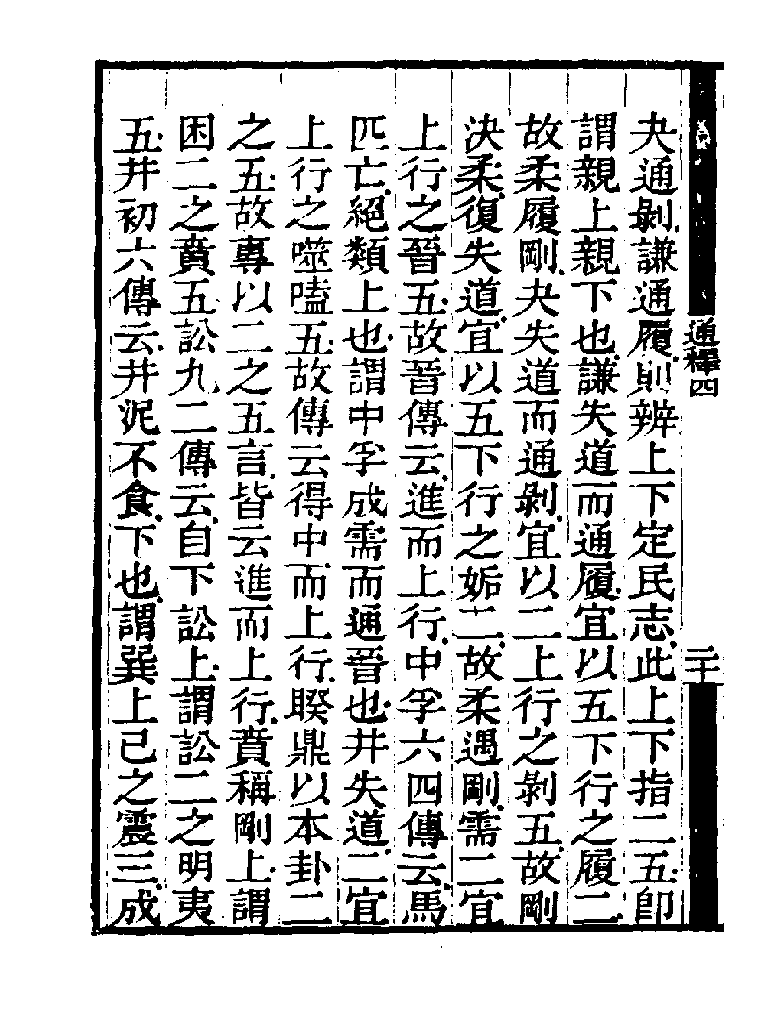 夬通剝謙通履則辨上下定民志此上下指二五卽
謂親上親下也謙失道而通履宜以五下行之履二
故柔履剛夬失道而通剝宜以二上行之剝五故剛
決柔復失道宜以五下行之姤二故柔遇剛需二宜
上行之晉五故晉傳云進而上行中孚六四傳云馬
匹亡絕類上也謂中孚成需而通晉也井失道二宜
上行之噬嗑五故傳云得中而上行睽鼎以本卦二
之五故專以二之五言皆云進而上行賁稱剛上謂
困二之賁五訟九二傳云自下訟上謂訟二之明夷
五井初六傳云井泥不食下也謂巽上已之震三成
通釋四
二十